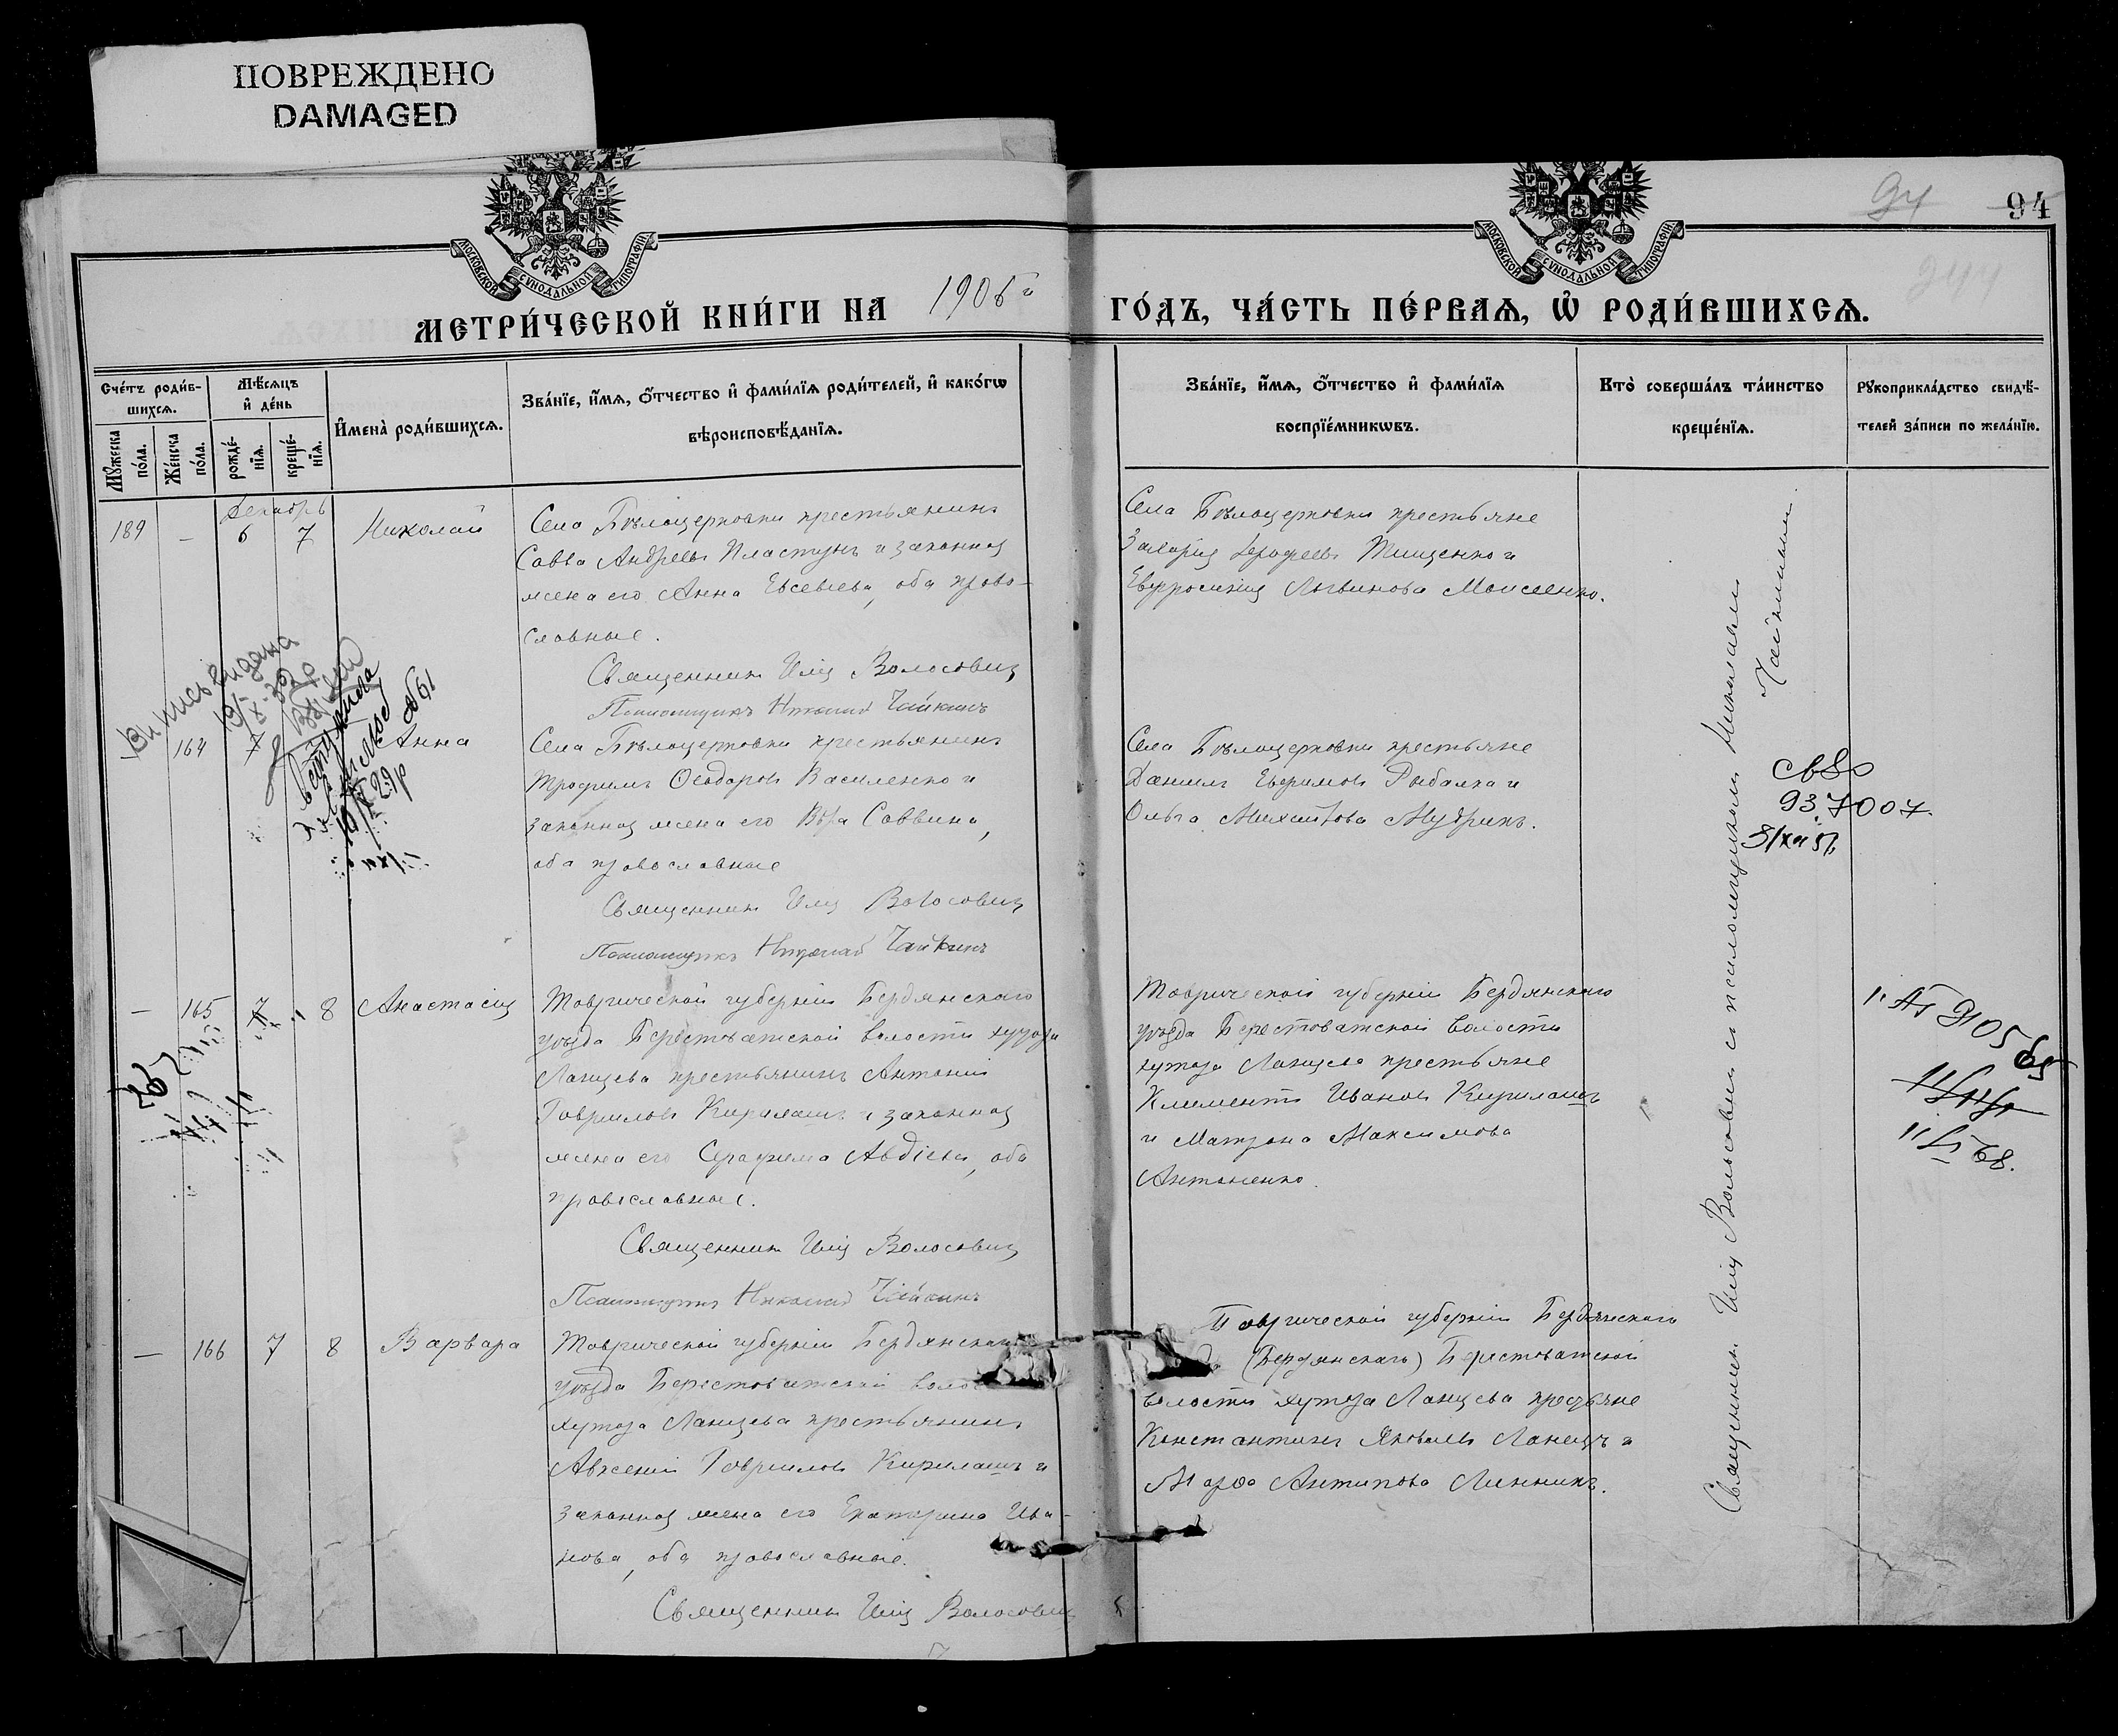 ПОВРЕЖДЕНО
DAMAGED
94
94
МОСКОВСКОЙ СѴНОДАЛЬНОЙ ТИПОГРАФІИ
МОСКОВСКОЙ СѴНОДАЛЬНОЙ ТИПОГРАФІИ
МЕТРИ́ЧЕСКОЙ КНИ́ГИ НА 1906 г ГО́ДЪ, ЧА́СТЬ ПЕ́РВАѦ, Ѡ҆ РОДИ́ВШИХСѦ.
Сче́тъ роди́в-
шихсѧ.
Мꙋ́жеска по́ла.
Же́нска по́ла.
Мѣ́сѧцъ и҆ де́нь
рожде́-нїѧ.
креще́-нїѧ.
И҆мена̀ роди́вшихсѧ.
Зва́нїе, и҆́мѧ, ѻ҆́тчество и҆ фами́лїѧ роди́телей, и҆ како́гѡ
вѣроисповѣ́данїѧ.
Зва́нїе, и҆́мѧ, ѻ҆́тчество и҆ фами́лїѧ
воспрїе́мникѡвъ.
Кто̀ соверша́лъ та́инство
креще́нїѧ.
Рꙋкоприкла́дство свидѣ́-
телей за́писи по жела́нїю.
Декабрь
189 – 6 7 Николай
Села Бѣлоцерковки крестьянинъ
Савва Андреевъ Пластунъ и законная
жена его Анна Евсевіева, оба право-
славные.
Священникъ Илія Волосовичъ
Псаломщикъ Николай Чайкинъ
Села Бѣлоцерковки крестьяне
Захарія Іерофеевъ Тищенко и
Евфросинія Логвинова Моисеенко.
164 7 Анна
Села Бѣлоцерковки крестьянинъ
Трофимъ Ѳеодоровъ Василенко и
законная жена его Вѣра Саввина,
оба православные
Священникъ Илія Волосовичъ
Псаломщикъ Николай Чайкинъ
Села Бѣлоцерковки крестьяне
Даніилъ Ефимовъ Рыбалка и
Ольга Михаилова Мудрикъ.
937007
– 165 7 8 Анастасія
Таврической губерніи Бердянскаго
уѣзда Берестоватской волости хутора
Ланцева крестьянинъ Антоній
Гавриловъ Кирилашъ и законная
жена его Серафима Авдіева, оба
православные.
Священникъ Илія Волосовичъ
Псаломщикъ Николай Чайкинъ
Таврической губерніи Бердянскаго
уѣзда Берестоватской волости
хутора Ланцева крестьяне
Климентъ Ивановъ Кирилашъ
и Матрона Максимова
Антоненко.
– 166 7 8 Варвара
Таврической губерніи Бердянскаго
уѣзда Берестоватской
хутора Ланцева крестьянинъ
Авксеній Гавриловъ Кирилашъ и
законная жена его Екатерина Ива-
нова, оба православные.
Священникъ Илія Волосовичъ
Таврической губерніи Бердянскаго
(Бердянскаго) Берестоватской
волости хутора Ланцева крестьяне
Константинъ Яковлевъ Ланецъ и
Марѳа Антипова Линникъ.
Священникъ Илія Волосовичъ съ псаломщикомъ Николаемъ
Чайкинымъ